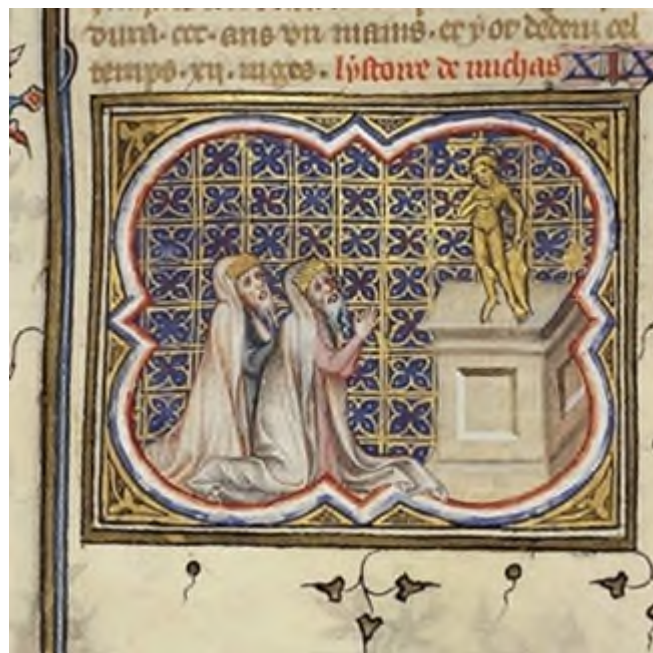 dura · ccc · ans vn mains · et y ot dedenz cel
temps · xij · iuges · lystoire de michas XIX